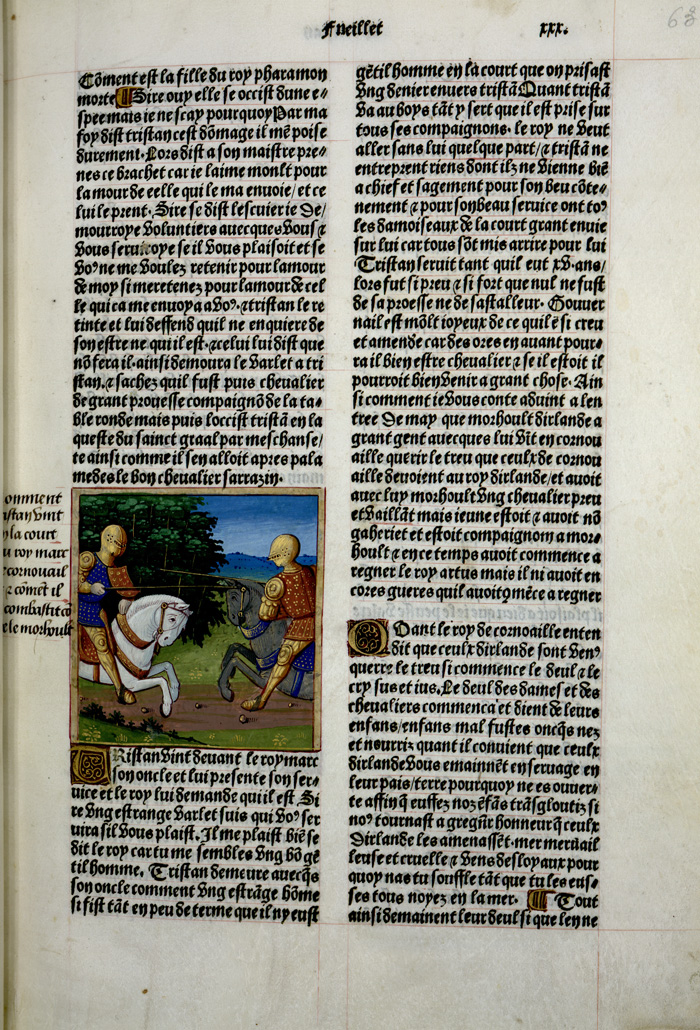 Fueillet xxx.
63
Cõment est la fille du roy pharamon
morte Sire ouy elle se occist dune e⸗
spee mais ie ne scay pourquoy Par ma
foy dist tristan cest dõmage il mẽ poise
durement. Lors dist a son maistre pre⸗
nes ce brachet car ie laime moult pour
la mour de celle qui le ma enuoie/et ce
lui le prent. Sire se dist lescuier ie De/
mourroye Voluntiers auecques Vous ⁊
Vous seruiroye se il Vous plaisoit et se
Voꝰ ne me Voulez retenir pour lamour
de moy si me retenez pour lamour de cel
le qui ca me enuoya a Voꝰ. ⁊ tristan le re
tinte et lui deffend quil ne enquiere de
son estre ne qui il est. ⁊ celui lui dist que
nõ fera il. ainsi demoura le Varlet a tri
stan. ⁊ sachez quil fust puis cheualier
de grant prouesse compaignõ de la ta⸗
ble ronde mais puis loccist tristã en la
queste du sainct graal par meschanse/
te ainsi comme il sen alloit apres pala
medes le bon cheualier sarrazin.
omment
ristan vint
n la court
u roy marc
cornouail
⁊ cõmẽt il
combastit cõ
e le morhoult
TRistan Vint deuant le roy marc
son oncle et lui presente son ser⸗
uice et le roy lui demande qui il est. Si
re Vng estrange Varlet suis qui Voꝰ ser
uira sil Vous plaist. Il me plaist biẽ se
dit le roy car tu me sembles Vng bõ gẽ
til homme. Tristan demeure auecq̃s
son oncle comment Vng estrãge hõme
si fist tãt en peu de terme que il ny eust
gẽtil homme en la court que on prisast
Vng denier enuers tristã Quant tristã
Va au boys tãt y sert que il est prise sur
tous ses compaignons. le roy ne Veut
aller sans lui quelque part/⁊ tristã ne
entreprent riens dont il nẽ Vienne biẽ
a chief et sagement pour son beu cõte⸗
nement ⁊ pour son beau seruice ont toꝰ
les damoiseaux de la court grant enuie
sur lui car tous sõt mis arriere pour lui
Tristan seruit tant quil eut xV. ans/
lors fut si preu ⁊ si fort que nul ne fust
de sa proesse ne de sa stalleur. Gouuer
nail est mõlt ioyeux de ce quil ẽ si creu
et amende car des ores en auant pour⸗
ra il bien estre cheualier ⁊ se il estoit il
pourroit bien Venir a grant chose. Ain
si comment ie Vous conte aduint a len
tree De may que morhoult dirlande a
grant gent auecques lui Vĩt en cornou
aille querir le treu que ceulx de cornou
aille deuoient au roy dirlande/et auoit
auec luy morhoult Vng cheualier preu
et Vaillãt mais ieune estoit ⁊ auoit nõ
gaheriet et estoit compaignon a mor⸗
hoult ⁊ en ce temps auoit commence a
regner le roy artus mais il ni auoit en
cores gueres quil auoit cõmẽce a regner
QVant le roy de cornoaille enten
dit que ceulx dirlande sont Venꝰ
querre le treu si commence le deul ⁊ le
cry sus et ius. Le deul des dames et des
cheualiers commenca et dient de leurs
enfans/enfans mal fustes oncq̃s nez
et nourriz quant il conuient que ceulx
dirlande Vous emainnẽt en seruage en
leur pais/terre pourquoy ne es ouuer⸗
te affin q̃ eussez noz ẽfãs trãsgloutiz si
noꝰ tournast a gregñr honneur q̃ ceulx
Dirlande les amenassẽt. mer merueil
leuse et cruelle ⁊ Vens desloyaux pour
quoy nas tu souffle tãt que tu les eus⸗
ses tous noyez en la mer. Tout
ainsi demainent leur deul si que len ne